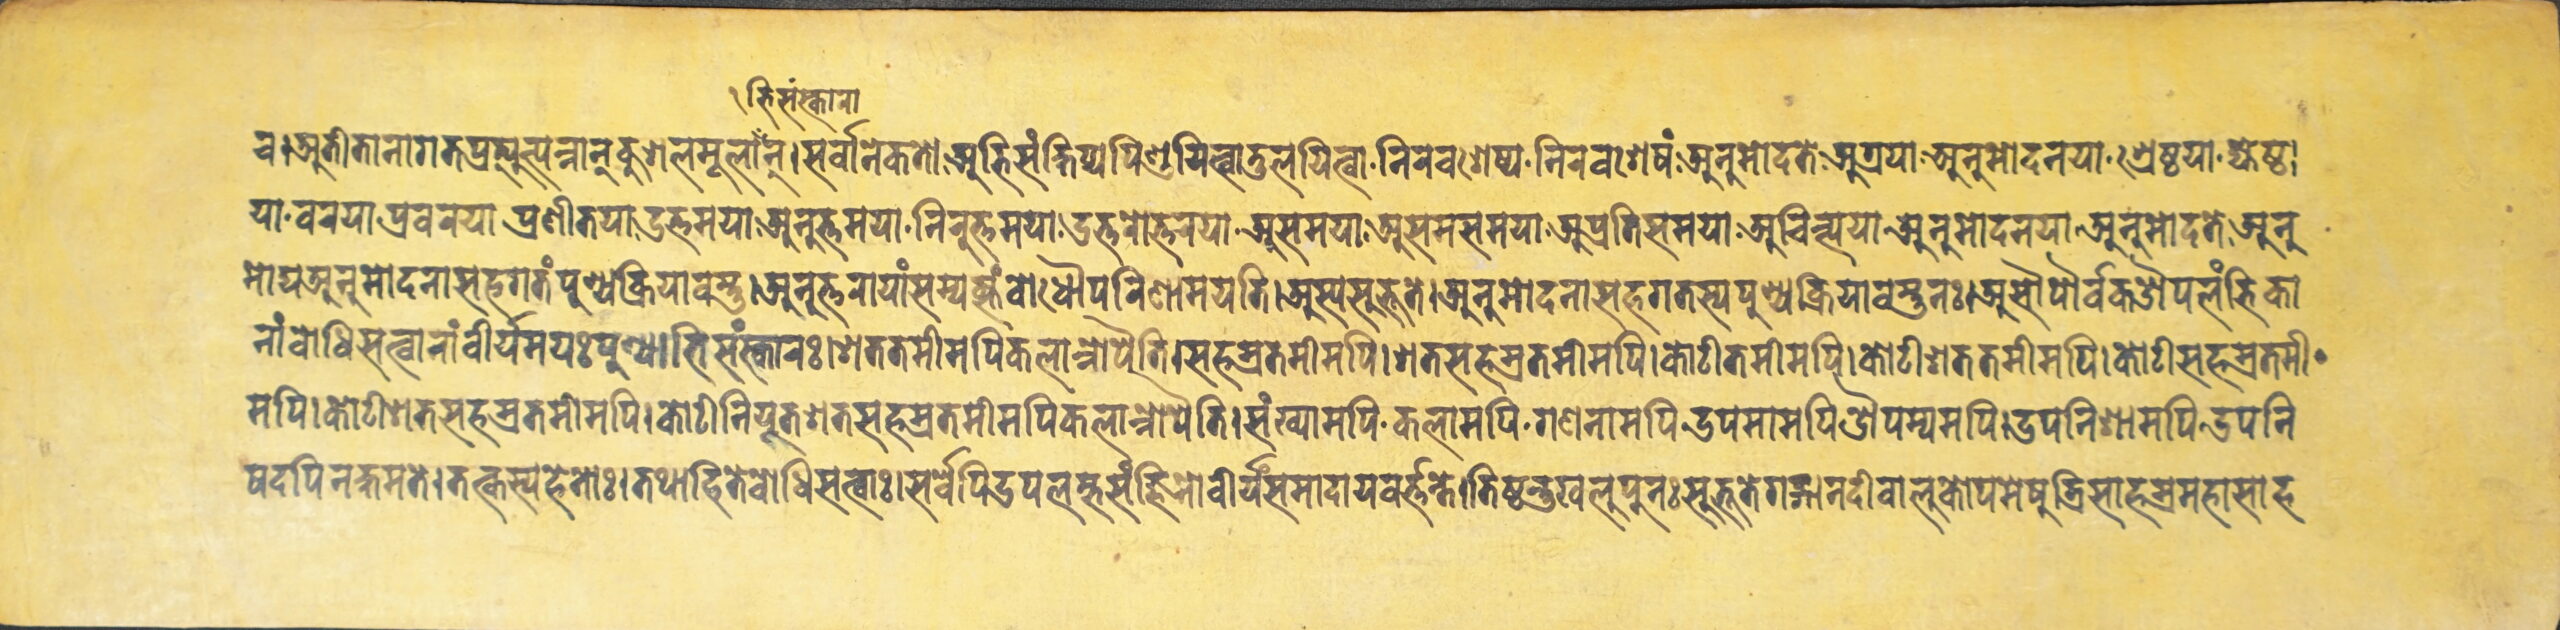 १भिसंस्कारा
च।अतीतानागतप्रत्युत्पन्नान्कुशलमूलाँन्।सर्वानेकतो अभिसंक्षिप्यपिण्डयित्वातुलयित्वा·निरवशेष्य·निरवशेषं अनुमोदते अग्रया अनुमोदनया·श्रेष्ठया·ज्येष्ठ।
या·वरया प्रवरया प्रणीतया उत्तमया अनुत्तमया·निरुत्तमया उत्तरोत्तरया·असमया असमसमया अप्रतिसमया अचिन्त्यया अनुमोदनया अनुमोदते अनु
मोद्यअनुमोदनासहगतंपुण्यक्रियावस्तु।अनुत्तरायांसम्यक्संबोधौपरिणामयति।अस्यसुभूते।अनुमोदनासहगतस्यपुण्यक्रियावस्तुनः।असौपौर्वकऔपलंभिका
नांबोधिसत्वानांवीर्यमयःपुण्याभिसंस्कारः।शततमीमपिकलान्नोपैति।सहस्रतमीमपि।शतसहस्रतमीमपि।कोटीतमीमपि।कोटीशततमीमपि।कोटीसहस्रतमी·
मपि।कोटीशतसहस्रतमीमपि।कोटीनियूतशतसहस्रतमीमपिकलान्नोपैति।संख्यामपि·कलामपि·गणनामपि उपमामपिऔपम्यमपि।उपनिशामपि उपनि
षदपिनक्षमते।तत्कस्यहेतोः।तथाहितेबोधिसत्वाः।सर्वेपिउपलम्भसंज्ञिनोवीर्यंसमादायवर्त्तन्ते।तिष्ठन्तुखलुपुनःसुभूतेगङ्गानदीवालुकोपमेषुत्रिसाहस्रमहासाह